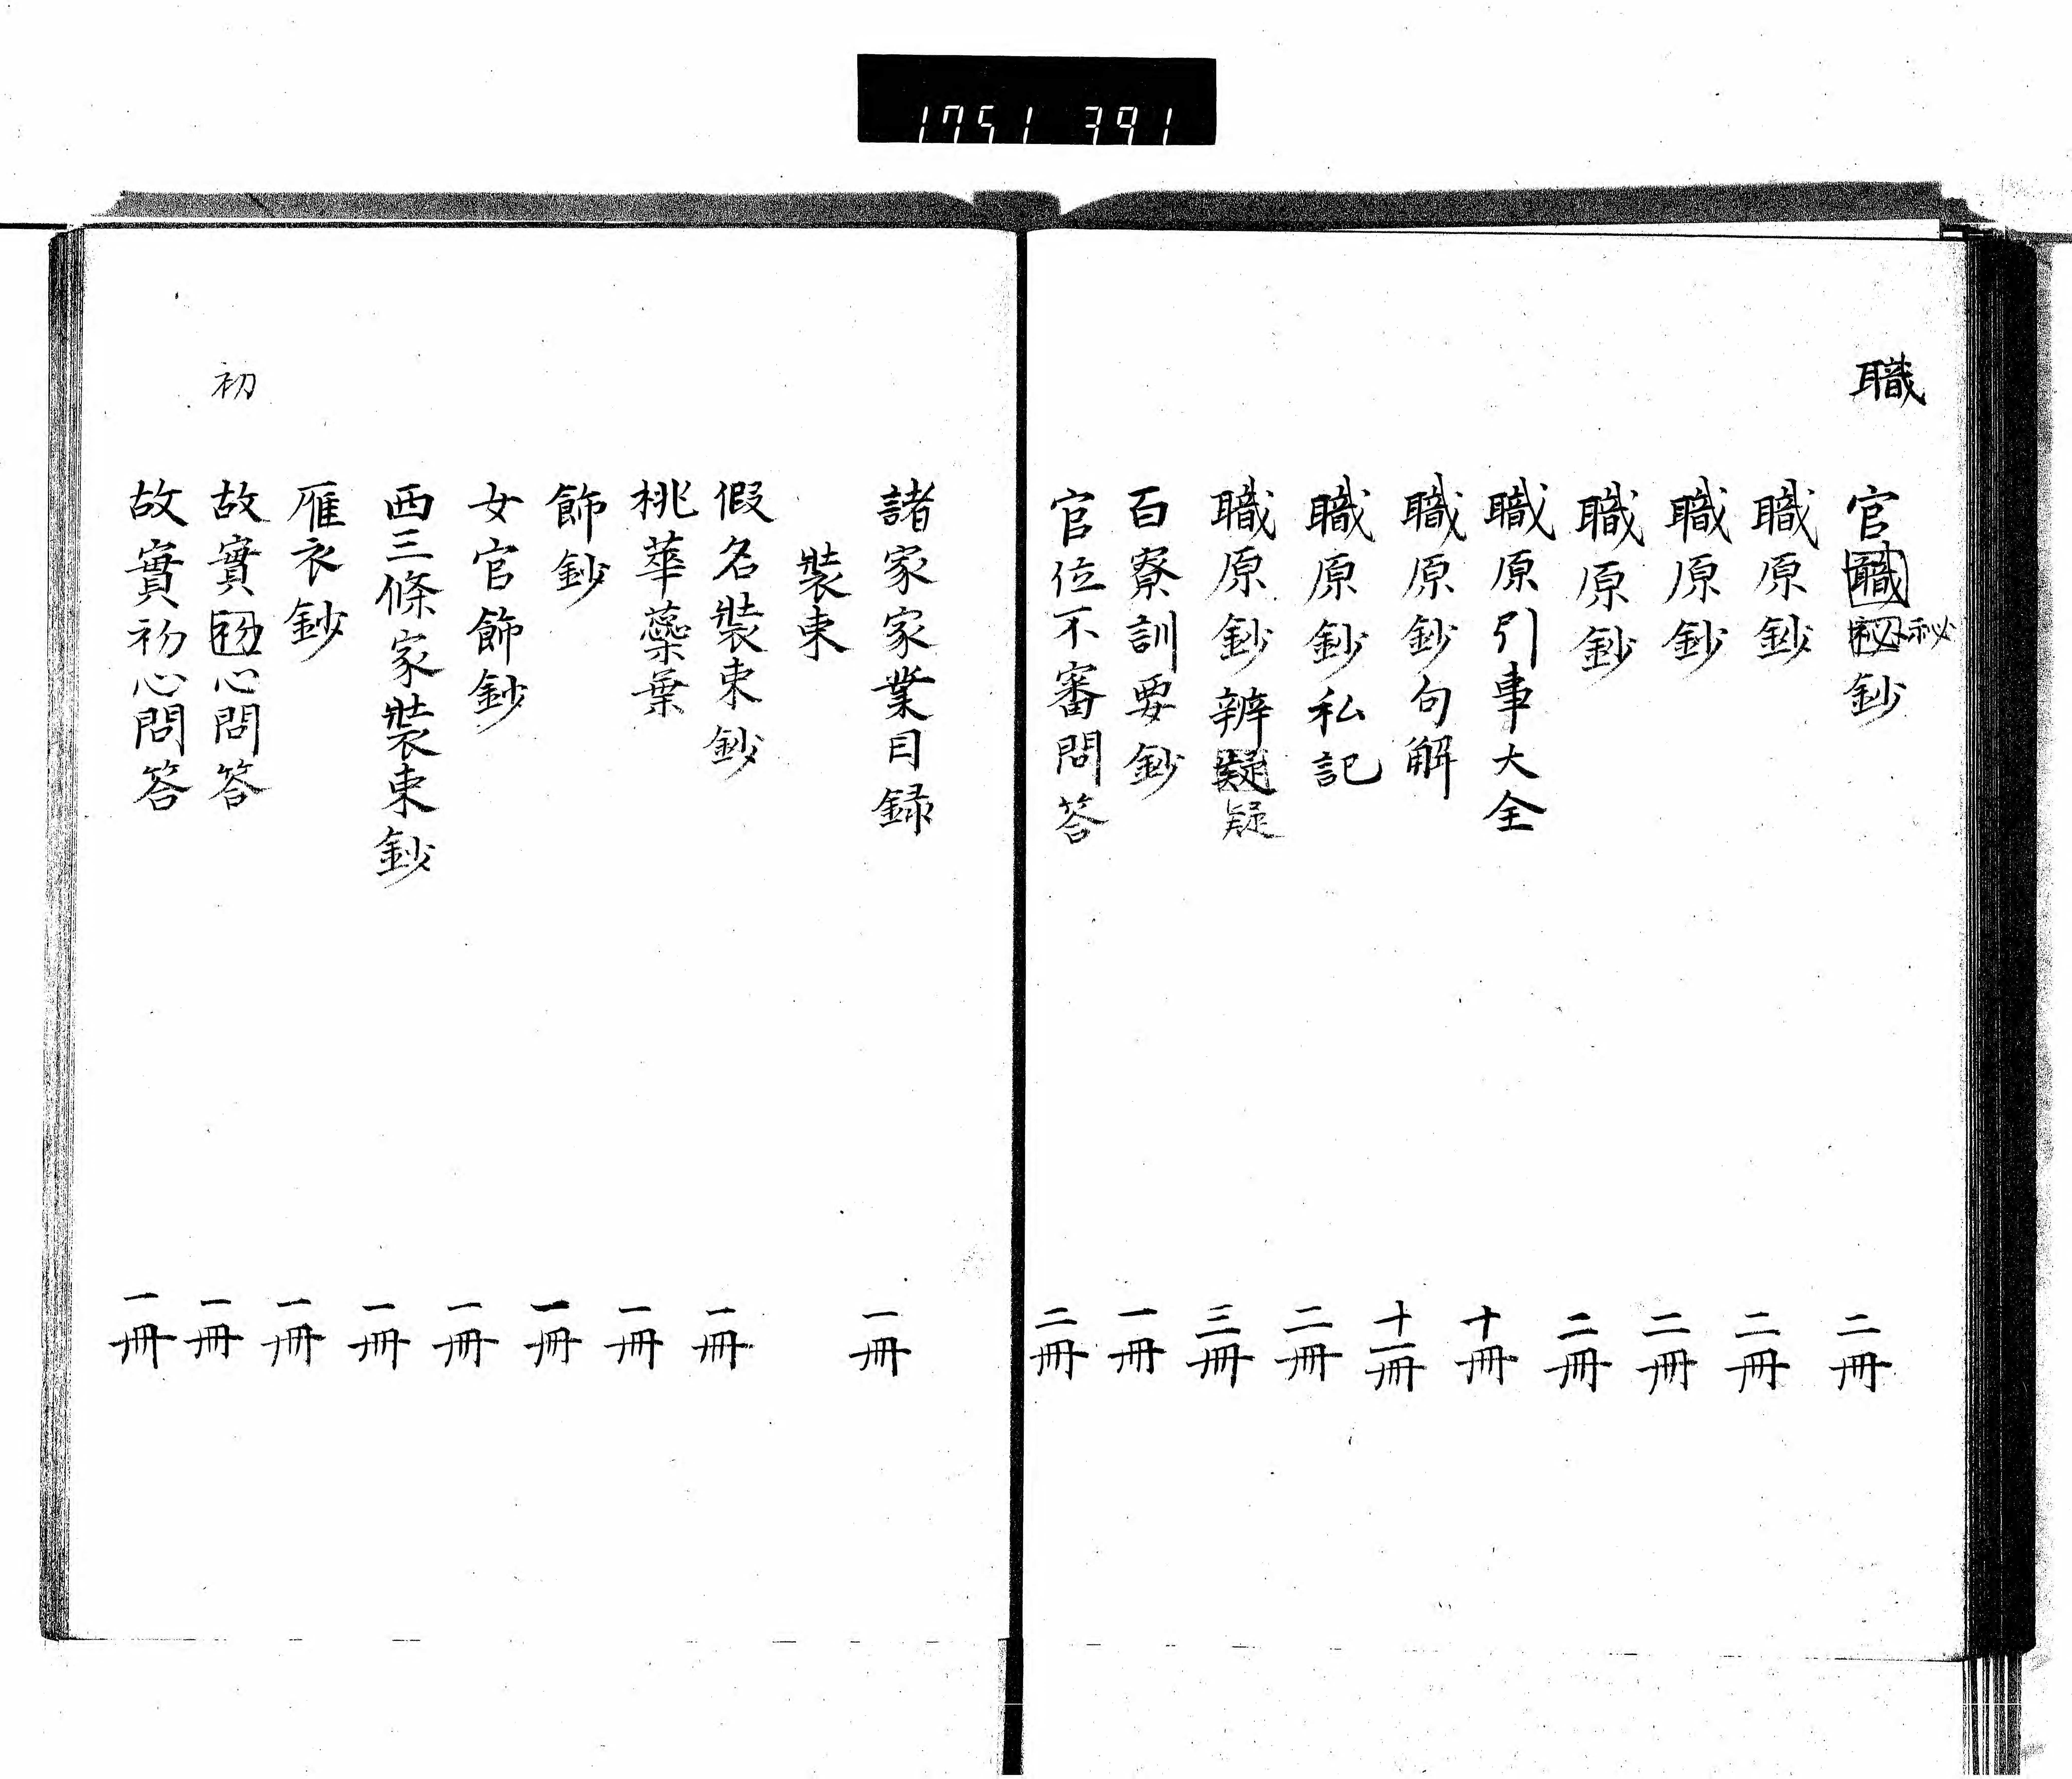 1751 391
職
官職秘鈔 二冊
秘
職原鈔 二冊
職原鈔 二冊
職原鈔 二冊
職原引事大全 十冊
職原鈔句解 十一冊
職原鈔私記 二冊
職原鈔辨疑 三冊
疑
百寮訓要鈔 一冊
官位不審問答 二冊
諸家家業目録 一冊
裝束
假名裝束鈔 一冊
桃華蘂葉 一冊
飾鈔 一冊
女官飾鈔 一冊
西三條家裝束鈔 一冊
雁衣鈔 一冊
初
故實初心問答 一冊
故實初心問答 一冊